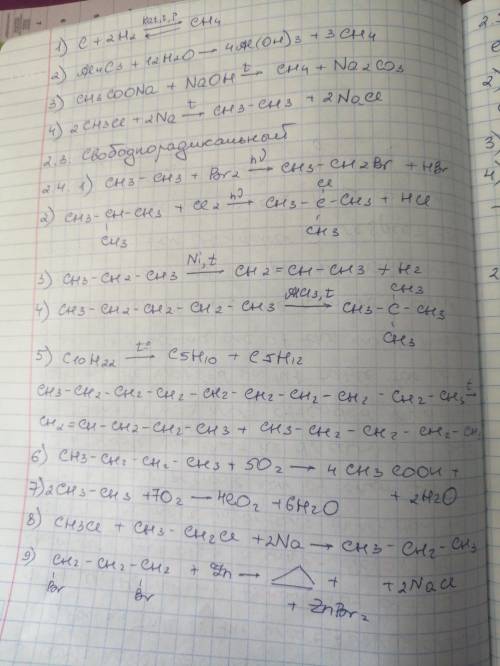 1) C + 2H2 ⇄ кат, t, p CH4
2) Al4C3 + 12H2O → 4Al(OH)3 + 3CH4
3) CH3COONa + NaOH →t CH4 + Na2CO3
4) 2CH3Cl + 2Na →t CH3-CH3 + 2NaCl
2.3. Свободнорадикальный
2.4. 1) CH3-CH3 + Br2 →hν CH3-CH2Br + HBr
Cl
2) CH3-CH-CH3 + Cl2 →hν CH3-C-CH3 + HCl
CH3 CH3
3) CH3-CH2-CH3 →Ni, t CH2=CH-CH3 + H2
CH3
4) CH3-CH2-CH2-CH2-CH3 →AlCl3, t CH3-C-CH3
CH3
5) C10H22 →t° C5H10 + C5H12
CH3-CH2-CH2-CH2-CH2-CH2-CH2-CH2-CH2-CH3 →t
CH2=CH-CH2-CH2-CH3 + CH3-CH2-CH2-CH2-CH
6) CH3-CH2-CH2-CH3 + 5O2 → 4 CH3COOH +
+ 2H2O
7) 2CH3-CH3 + 7O2 → 4CO2 + 6H2O
8) CH3Cl + CH3-CH2Cl + 2Na → CH3-CH2-CH3
+ 2NaCl
9) CH2-CH2-CH2 + Zn → △ +
Br Br + ZnBr2
2.
2)
3)
4)
2